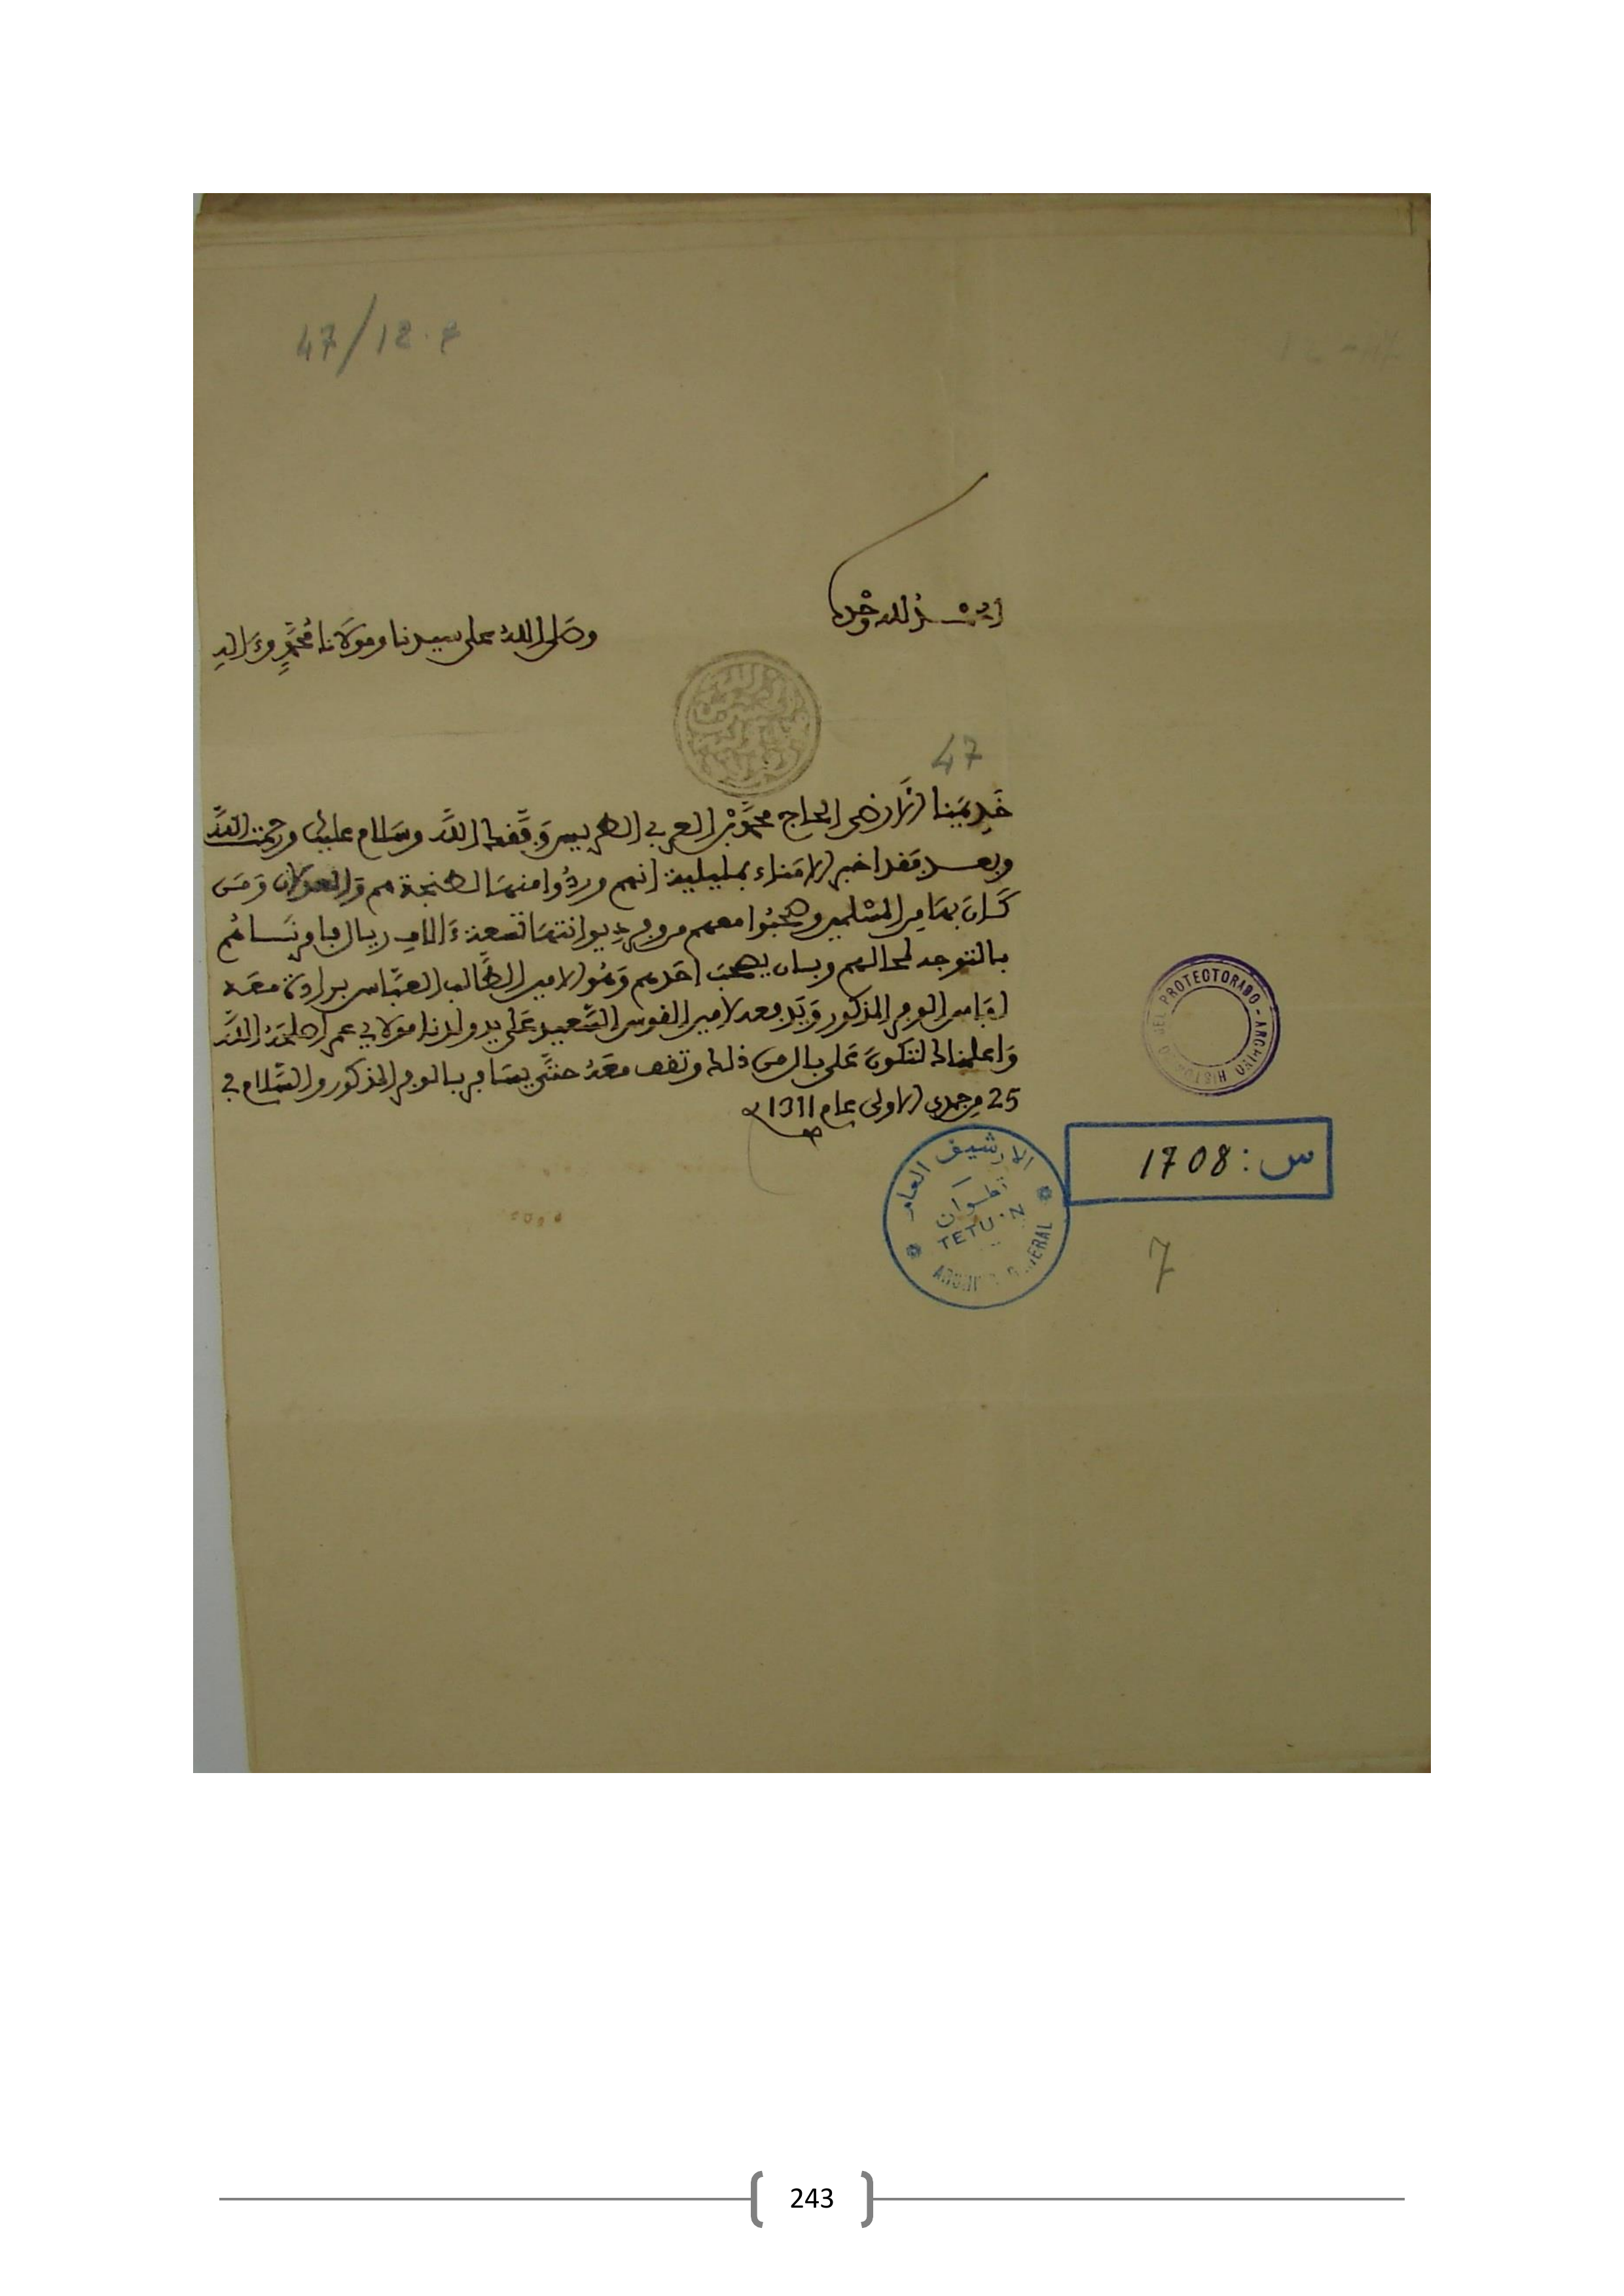 47/18.7
الحمد لله وحده
وصلى الله على سيدنا ومولانا محمد وءاله
47
خديمنا الأرضى الحاج محمد بن العربي الطريس وفقك الله وسلام عليك ورحمت الله
وبعد فقد اخبر الامناء بمليلية انهم وردوا منها لطنجة هم والعدلان ومن
كان بها من المسلمين وصحبوا معهم من وفر ديوانتها تسعة ءالاف ريال فامرنساهم
بالتوجه لمحالهم وبان يصحب احدهم وهو الامين الطالب العباس برادة معه
لفاس الوفر المذكور ويدفعه لامين الفوس السعيد على يد ولدنا مولاي عمر اصلحه الله
واعلمناك لتكون على بال من ذلك وتقف معه حتى يسافر بالوفر المذكور والسلام في
25 من جمدى الاولى عام 1311
DEL PROTECTORADO - ARCHIVO HISTO
س: 1708
الارشيف العام
تطوان
TETU N
7
243